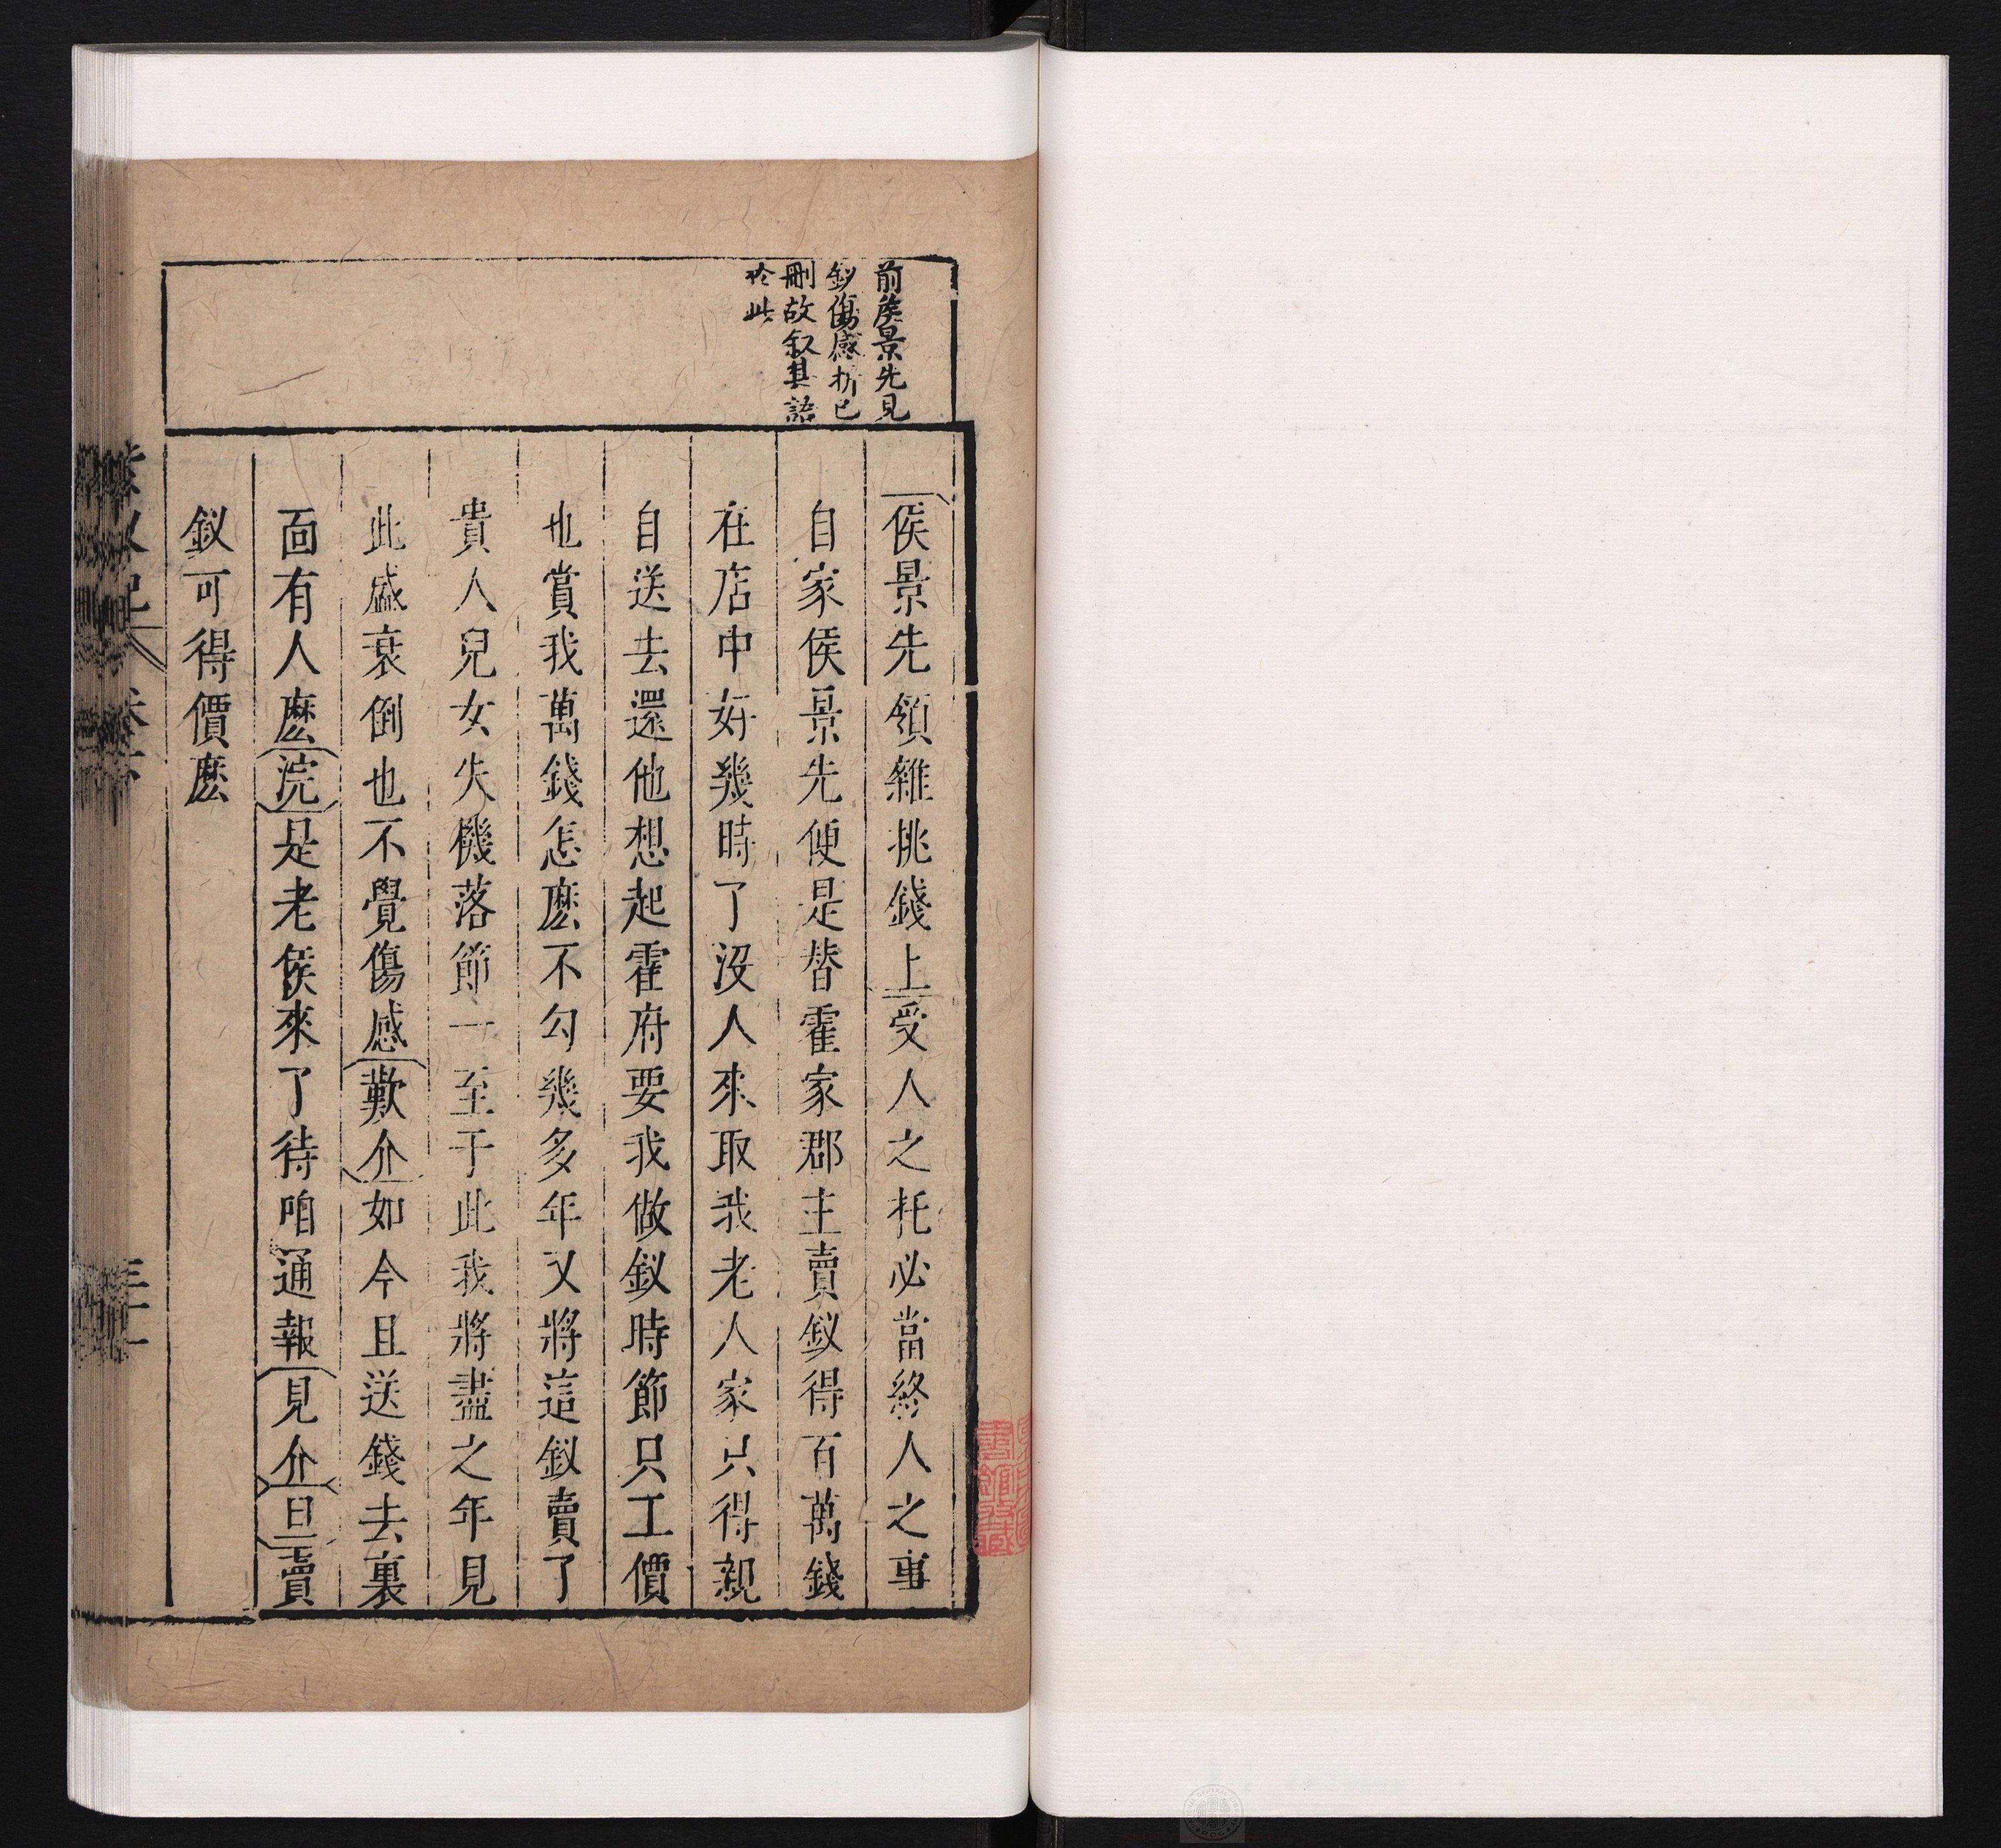 前矦景先見
釵傷感折已
刪故叙其語
於此
侯景先領雜挑錢上受人之托必當終人之事
自家侯景先便是替霍家郡主賣釵得百萬錢
在店中好幾時了沒人來取我老人家只得親
自送去還他想起霍府要我做釵時節只工價
也賞我萬錢怎麽不勾幾多年又將這釵賣了
貴人兒女失機落節一至于此我將盡之年見
此盛衰倒也不覺傷感歎介如今且送錢去裏
面有人麽浣是老侯來了待咱通報見介旦賣
釵可得價麽